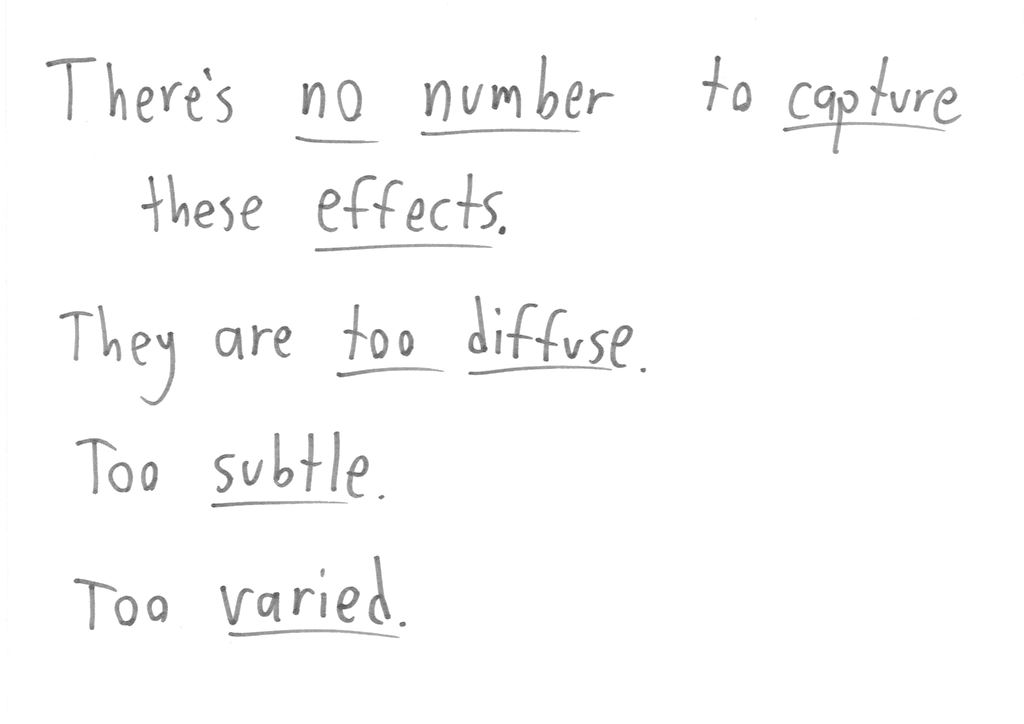 There's no number to capture
these effects.
They are too diffuse.
Too subtle.
Too varied.